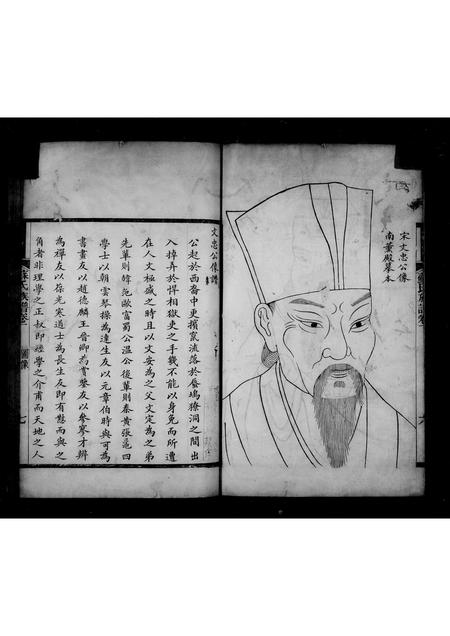 宋文忠公像
南薰殿摹本
文忠公像譜
公起於西蜀中更擯竄流落於蜑塢獠洞之間出
入掉弄於悍相獄吏之手幾不能以身免而所遭
在人文極盛之時且以文安為之父文定為之弟
先輩則韓范歐富蜀公溫公後輩則秦黃張晁四
學士以朝雲琴操為達生友以元章伯時與可為
書畫友以趙德麟王晉卿為賞鑒友以參寥才辨
為禪友以葆光寒道士為長生友即有慭而與之
角者非理學之正叔即經學之介甫而天地之人
蘇氏族譜卷
圖像
七